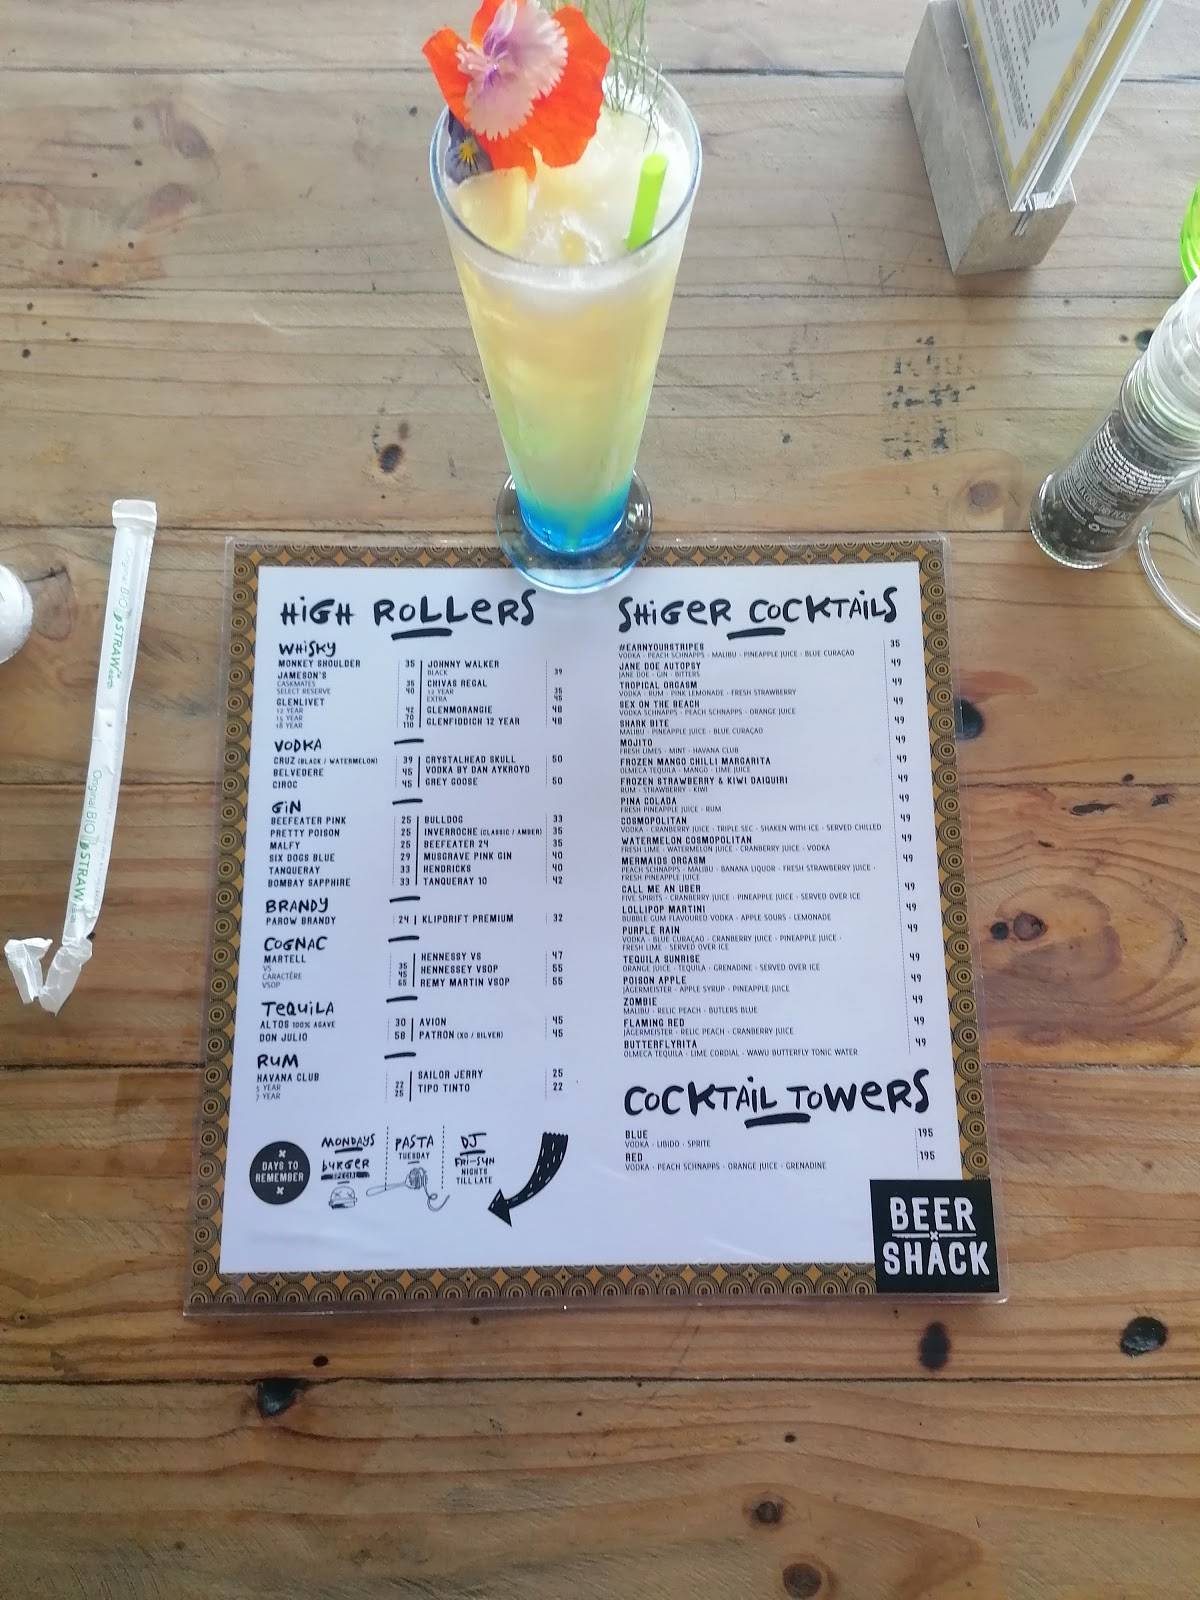 HIGH ROLLERS
WHISKY
MONKEY SHOULDER 35
JAMESON'S
CASKMATES 35
SELECT RESERVE 40
GLENLIVET
12 YEAR 42
15 YEAR 70
18 YEAR 110
JOHNNY WALKER
BLACK 39
CHIVAS REGAL
12 YEAR 35
EXTRA 45
GLENMORANGIE 48
GLENFIDDICH 12 YEAR 48
VODKA
CRUZ (BLACK / WATERMELON) 39
BELVEDERE 45
CIROC 45
CRYSTALHEAD SKULL 50
VODKA BY DAN AYKROYD
GREY GOOSE 50
GIN
BEEFEATER PINK 25
PRETTY POISON 25
MALFY 25
SIX DOGS BLUE 29
TANQUERAY 33
BOMBAY SAPPHIRE 33
BULLDOG 33
INVERROCHE (CLASSIC / AMBER) 35
BEEFEATER 24 35
MUSGRAVE PINK GIN 40
HENDRICKS 40
TANQUERAY 10 42
BRANDY
PAROW BRANDY 24
KLIPDRIFT PREMIUM 32
COGNAC
MARTELL
VS 35
CARACTÈRE 45
VSOP 65
HENNESSY VS 47
HENNESSEY VSOP 55
REMY MARTIN VSOP 55
TEQUILA
ALTOS 100% AGAVE 30
DON JULIO 58
AVION 45
PATRON (XO / SILVER) 45
RUM
HAVANA CLUB
5 YEAR 22
7 YEAR 25
SAILOR JERRY 25
TIPO TINTO 22
DAYS TO
REMEMBER
MONDAYS
BURGER
SPECIAL
PASTA
TUESDAY
DJ
FRI-SUN
NIGHTS
TILL LATE
SHIGER COCKTAILS
#EARNYOURSTRIPES 35
VODKA · PEACH SCHNAPPS · MALIBU · PINEAPPLE JUICE · BLUE CURAÇAO
JANE DOE AUTOPSY 49
JANE DOE · GIN · BITTERS
TROPICAL ORGASM 49
VODKA · RUM · PINK LEMONADE · FRESH STRAWBERRY
SEX ON THE BEACH 49
VODKA SCHNAPPS · PEACH SCHNAPPS · ORANGE JUICE
SHARK BITE 49
MALIBU · PINEAPPLE JUICE · BLUE CURAÇAO
MOJITO 49
FRESH LIMES · MINT · HAVANA CLUB
FROZEN MANGO CHILLI MARGARITA 49
OLMECA TEQUILA · MANGO · LIME JUICE
FROZEN STRAWBERRY & KIWI DAIQUIRI 49
RUM · STRAWBERRY · KIWI
PINA COLADA 49
FRESH PINEAPPLE JUICE · RUM
COSMOPOLITAN 49
VODKA · CRANBERRY JUICE · TRIPLE SEC · SHAKEN WITH ICE · SERVED CHILLED
WATERMELON COSMOPOLITAN 49
FRESH LIME · WATERMELON JUICE · CRANBERRY JUICE · VODKA
MERMAIDS ORGASM 49
PEACH SCHNAPPS · MALIBU · BANANA LIQUOR · FRESH STRAWBERRY JUICE ·
FRESH PINEAPPLE JUICE
CALL ME AN UBER 49
FIVE SPIRITS · CRANBERRY JUICE · PINEAPPLE JUICE · SERVED OVER ICE
LOLLIPOP MARTINI 49
BUBBLE GUM FLAVOURED VODKA · APPLE SOURS · LEMONADE
PURPLE RAIN 49
VODKA · BLUE CURAÇAO · CRANBERRY JUICE · PINEAPPLE JUICE ·
FRESH LIME · SERVED OVER ICE
TEQUILA SUNRISE 49
ORANGE JUICE · TEQUILA · GRENADINE · SERVED OVER ICE
POISON APPLE 49
JÄGERMEISTER · APPLE SYRUP · PINEAPPLE JUICE
ZOMBIE 49
MALIBU · RELIC PEACH · BUTLERS BLUE
FLAMING RED 49
JÄGERMEISTER · RELIC PEACH · CRANBERRY JUICE
BUTTERFLYRITA 49
OLMECA TEQUILA · LIME CORDIAL · WAWU BUTTERFLY TONIC WATER
COCKTAIL TOWERS
BLUE 195
VODKA · LIBIDO · SPRITE
RED 195
VODKA · PEACH SCHNAPPS · ORANGE JUICE · GRENADINE
BEER
SHACK
Original BIO STRAW
Original BIO STRAW